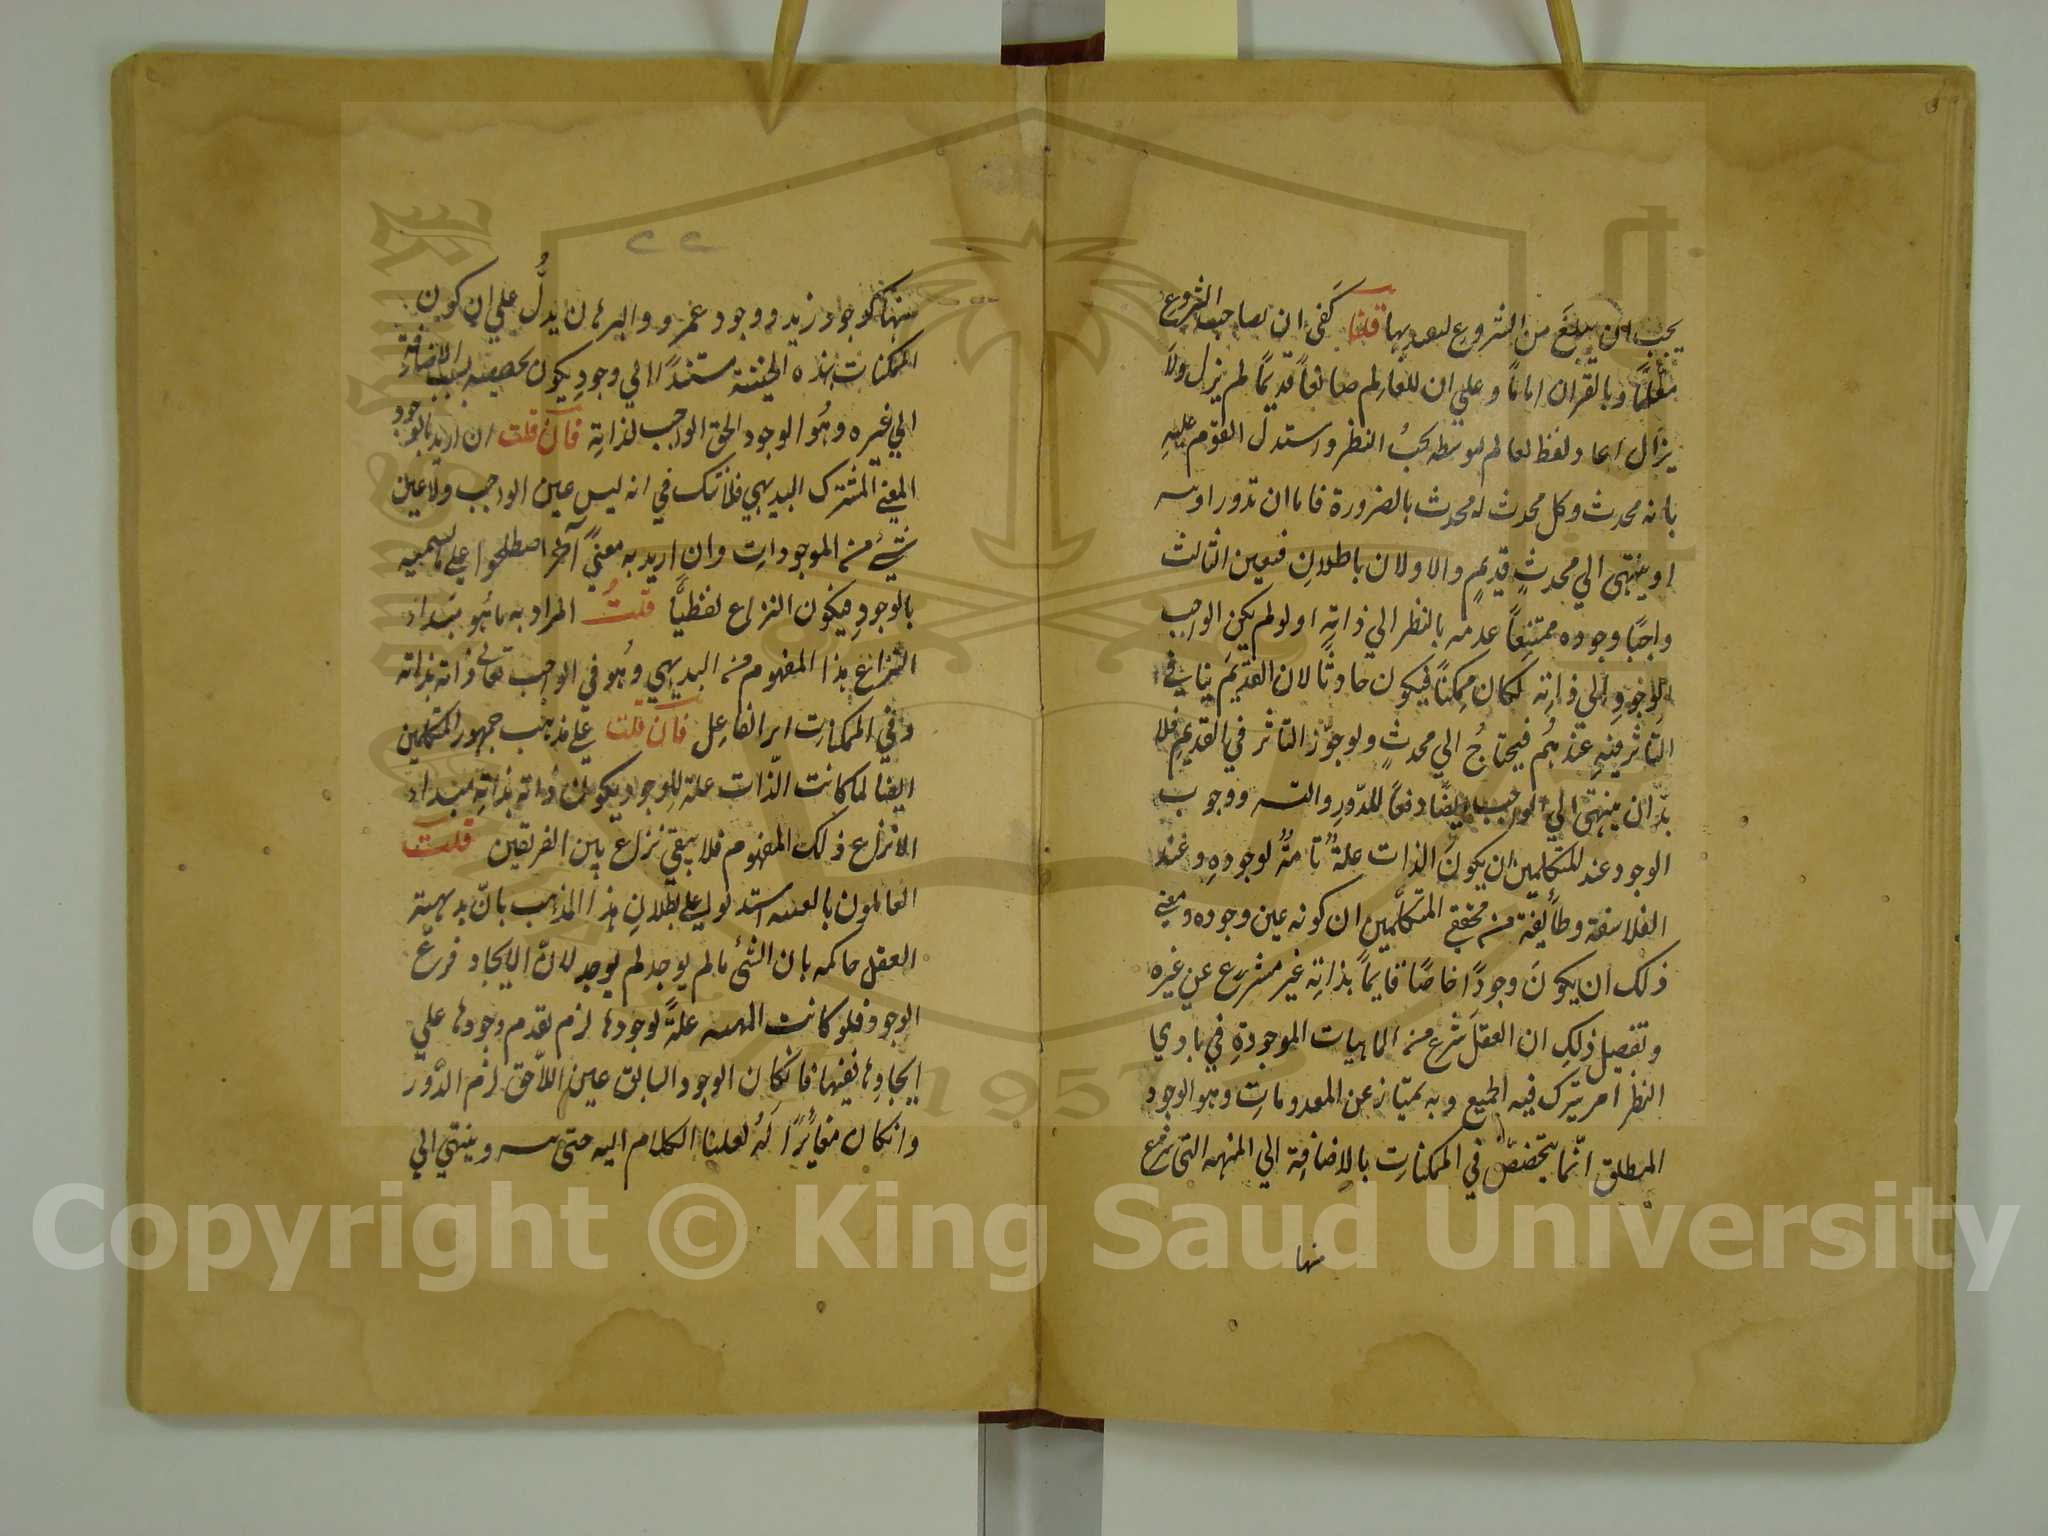 يجب ان يبلغ من الشروع ليعد بها قلنا كفى ان لصاحب الشروع
معلما وبالقران اماما وعلي ان للعالم صانعاً قديماً لم يزل ولا
يزال اعاد لفظ العالم لتوسطه بحث النظر واستدل القوم عليه
بانه محدث وكل محدث له محدث بالضرورة فاما ان تدور او يتسه
او ينتهى الي محدثٍ قديمٍ والاولان باطلانِ فتعين الثالث
واجبًا وجوده ممتنعاً عدمه بالنظر الي ذاتهِ اولولم يكن الواجب
الوجودِ الي ذاتهِ لكان ممكناً فيكون حادثًا لان القديمَ ينافي
التأثر فيهِ عندهُم فيحتاجُ الي محدثٍ ولو جوّز التاثر في القديم فلا
بدّ ان ينتهى الي الواجب ايضًا دفعًا للدّورِ والتسه ووجوب
الوجود عند المتكلمين ان يكونَ الذات علةً تامةً لوجودهِ وعند
الفلاسفة وطائفة من محققي المتكلّمين ان كونه عين وجوده ومعنى
ذلك ان يكونَ وجودًا خاصًا قايماً بذاتِهِ غير منتزع عن غيره
وتفصيل ذلكِ ان العقلَ ينتزع من الماهيات الموجودةِ في بادي
النظر امر يشترك فيه الجميع وبه تمتاز عن المعدوماتِ وهو الوجود
المطلق انّما يتخصّص في الممكنات بالاضافة الي المهيه التى ينتزع
منها
٢٢
منها كوجود زيد ووجود عمرو والبرهان يدلُّ علي ان كون
الممكنات بهذه الحيثية مستندًا الي وجودٍ يكون تخصيصه بسلب الاضافة
الي غيره وهُو الوجود الحق الواجب لذاتهِ فان قلت ان اريد بالوجود
المعنى المشترك البديهي فلا شك في انه ليس عين الواجب ولا عين
شيء من الموجودات وان اريد به معنيً آخر اصطلحوا علي تسميه
بالوجودِ فيكون النزاع لفظيًّا قلتُ المراد به ما هُو مبداء
انتزاع هذا المفهوم من البديهي وهُو في الواجب تعالى ذاته بذاته
وفي الممكنات اثر الفاعل فان قلت علي مذهب جمهور المتكلمين
ايضا لما كانت الذّات علة للوجود يكون ذاته بذاتِهِ مبداء
الانتزاع ذلك المفهوم فلا يبقي نزاع بين الفريقين قلت
القائلون بالعينيه استدلو علي بطلانِ هذا المذهب بانّ بديهية
العقل حاكمه بان الشئ مالم يوجد لم يوجِد لانّ الايجاد فرع
الوجود فلو كانت المهيه علةً لوجودها لزم تقدم وجودها علي
ايجادِها نفيها فانكان الوجود السابق عين اللاّحق لزم الدَّور
وانكان مغايرًا لهُ نقلنا الكلام اليه حتى يتسه وينتهي الي
1957
Copyright © King Saud University